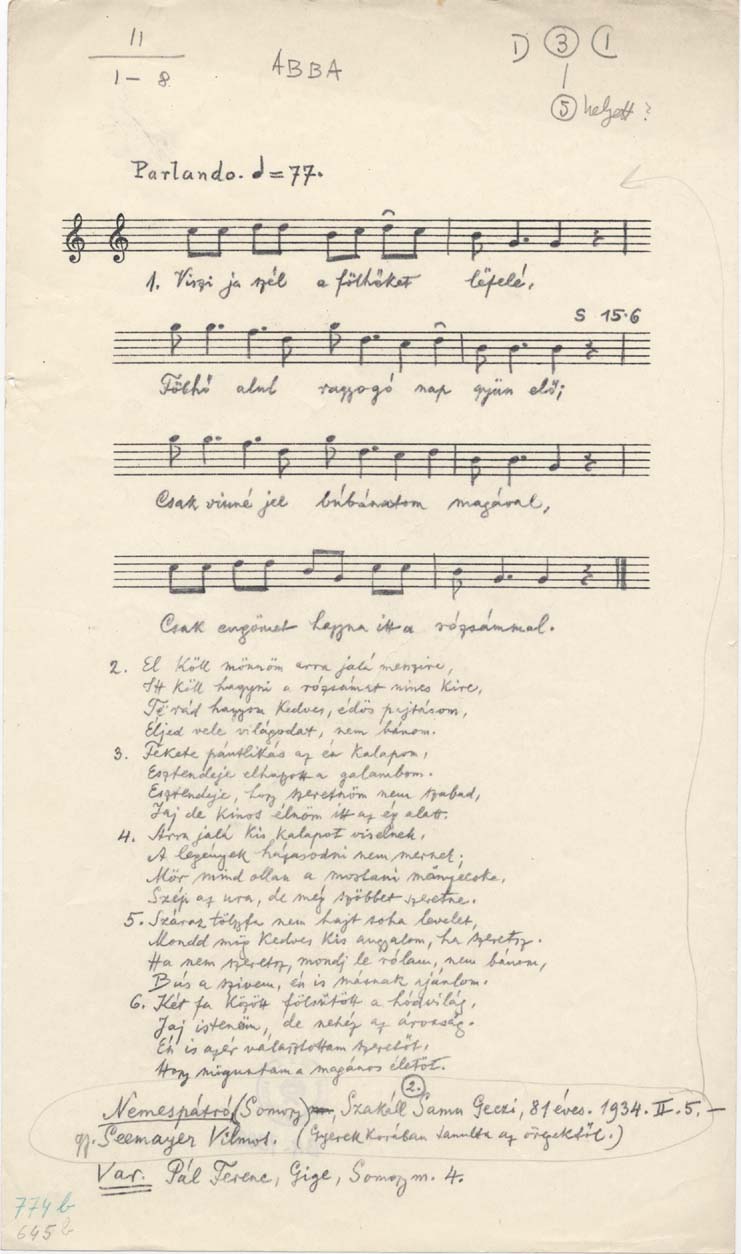 11
1-8
ABBA
1) 3 (1
5 helyett?
Parlando. ♩=77.
1. Viszi ja szél a fölhőket lëfelé,
S 15.6
Fölhő alul ragyogó nap gyün elő;
Csak vinné jel búbánatom magával,
Csak engömet hagyna itt a rózsámmal.
2. El köll mönnöm arra jalá menzire,
Itt köll hagyni a rózsámat nincs kire,
Të rád hagyom kedves, édös pajtásom,
Eljed vele világodat, nem bánom.
3. Fekete pántlikás az én kalapom,
Esztendeje elhagyott a galambom.
Esztendeje, hogy szeretnöm nem szabad,
Jaj de kinos élnöm itt az ég alatt.
4. Arra jalá kis kalapot viselnek,
A legények házasodni nem mernek;
Mör mind ollan a mostani
Szép az ura, de még szöbbet szeretne.
5. Száraz fa nem hajt soha levelet,
Mondd mög kedves kis angyalom, ha szeretsz.
Ha nem szeretsz, mondj le rólam, nem bánom,
Bús a szivem, én is másnak ajánlom.
6. Két fa között fölsütött a hódvilág,
Jaj istenöm, de nehéz az árvaság.
Én is azér választottam szeretőt,
Hogy möguntam a magános életöt.
2.
Nemespátró (Somogy), Szakáll Samu Geczi, 81 éves. 1934. II. 5. -
gy. Seemayer Vilmos. (Gyerekkorában tanulta az öregektől.)
Var. Pál Ferenc, Gige, Somogy m. 4.
774 b
645 b